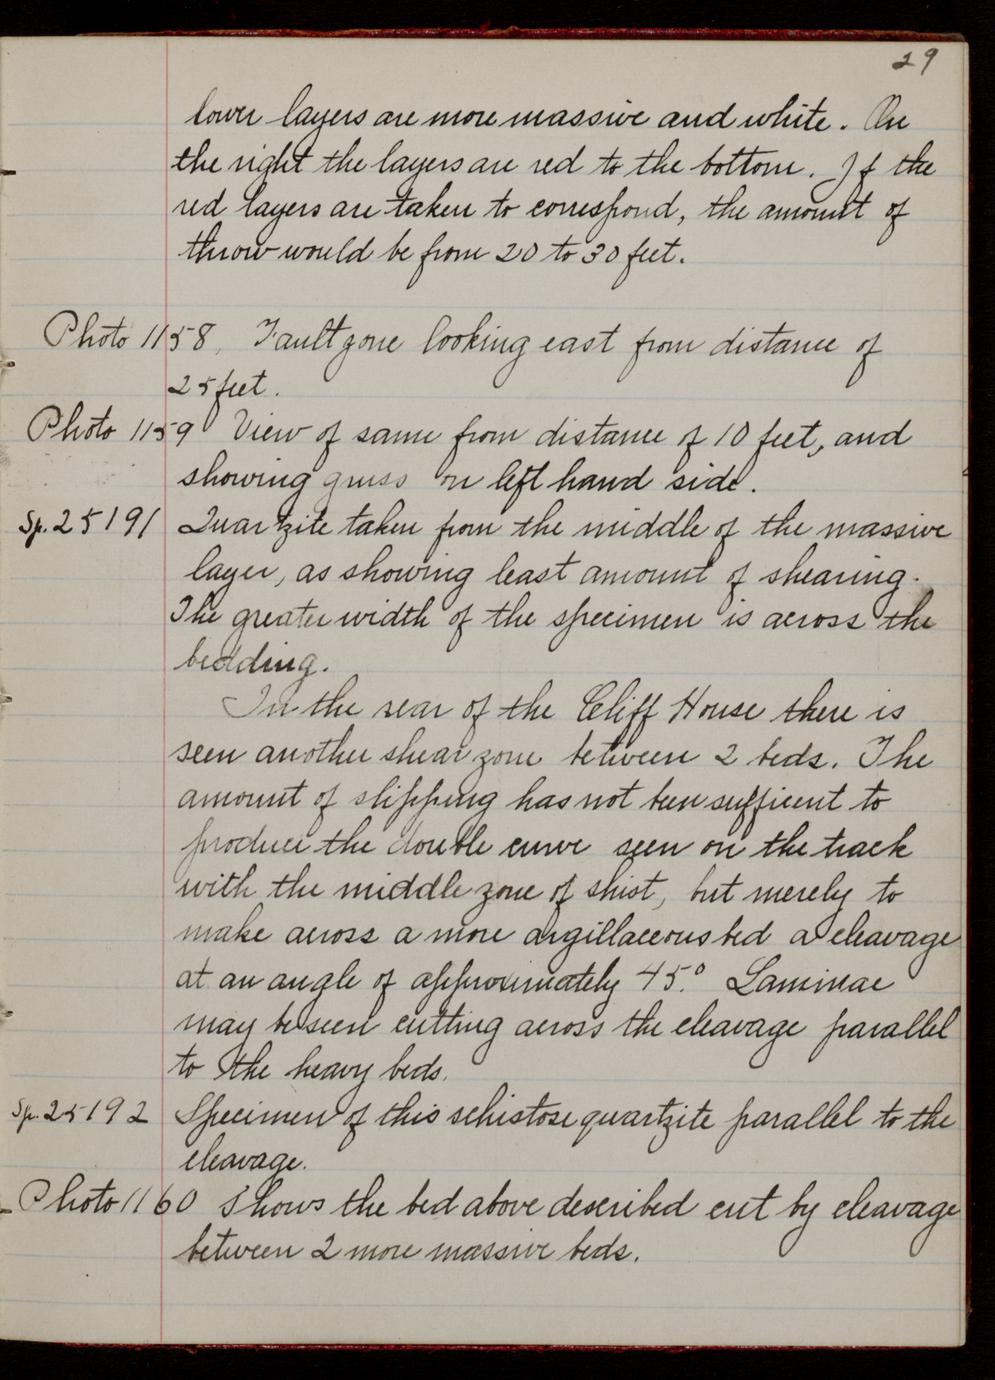 29
lower layers are more massive and white. On
the right the layers are red to the bottom. If the
red layers are taken to correspond, the amount of
throw would be from 20 to 30 feet.
Photo 1158, Fault zone looking east from distance of
25 feet.
Photo 1159 View of same from distance of 10 feet, and
showing on left hand side.
Sp. 25191 Quartzite taken from the middle of the massive
layer, as showing least amount of shearing.
The greater width of the specimen is across the
bedding.
In the rear of the Cliff House there is
seen another shear zone between 2 beds. The
amount of slipping has not been sufficent to
produce the double curve seen on the track
with the middle zone of shist, but merely to
make across a more argillaceous bed a cleavage
at an angle of approximately 45.° Laminae
may be seen cutting across the cleavage parallel
to the heavy beds.
Sp. 25192 Specimen of this schistose quartzite parallel to the
cleavage.
Photo 1160 Shows the bed above described cut by cleavage
between 2 more massive beds.